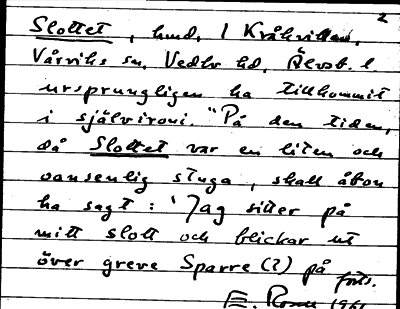 2
Slottet, hmd, I Kråkviken,
Vårviks sn, Vedbo hd, Älvsb. l
ursprungligen ha tillkommit
i självironi. "På den tiden,
då Slottet var en liten och
oansenlig stuga, skall åbon
ha sagt: 'Jag sitter på
mitt slott och blickar ut
över greve Sparre (?) på forts.
E. 1961